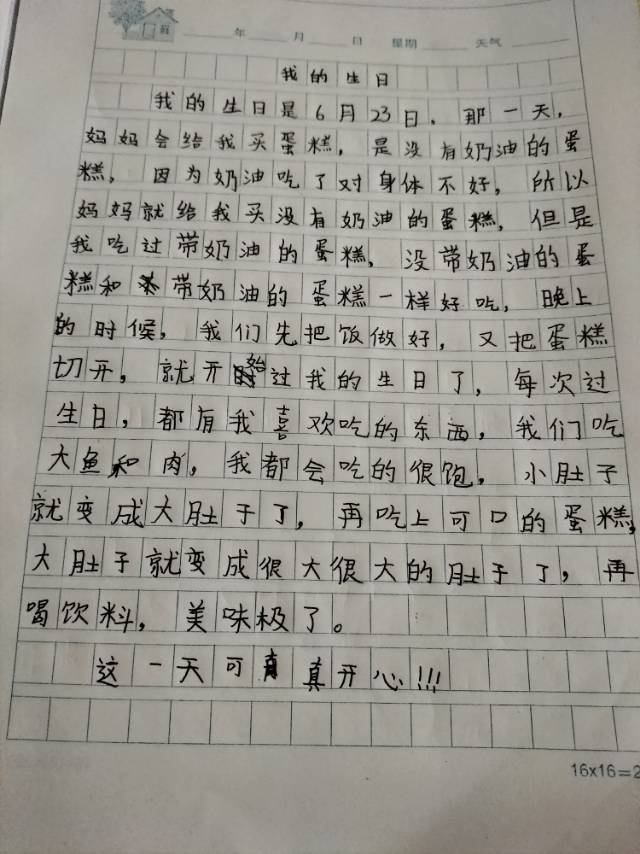 年 月 日 星期 天气
我的生日
我的生日是6月23日。那一天，
妈妈会给我买蛋糕，是没有奶油的蛋
糕，因为奶油吃了对身体不好，所以
妈妈就给我买没有奶油的蛋糕，但是
我吃过带奶油的蛋糕，没带奶油的蛋
糕和带奶油的蛋糕一样好吃，晚上
的时候，我们先把饭做好，又把蛋糕
切开，就开始过我的生日了，每次过
生日，都有我喜欢吃的东西，我们吃
大鱼和肉，我都会吃的很饱，小肚子
就变成大肚子了，再吃上可口的蛋糕，
大肚子就变成很大很大的肚子了，再
喝饮料，美味极了。
这一天可真开心!!!
16x16=2